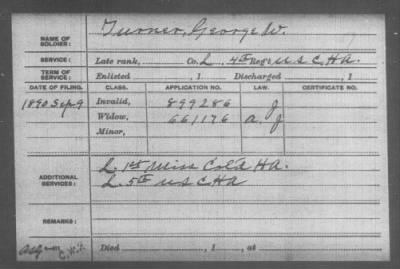 NAME OF SOLDIER: Turner, George W.
SERVICE: Late rank, Co. L, 4th Reg't U S C, H A.
TERM OF SERVICE: Enlisted , 1 Discharged , 1
DATE OF FILING. CLASS. APPLICATION NO. LAW. CERTIFICATE NO.
1890 Sep 9 Invalid, 899286 J
Widow, 661176 a. J
Minor,
ADDITIONAL SERVICES: L. 1st Miss Cold H A.
L. 5th U S C H A
REMARKS:
C.W.
Died , 1 , at